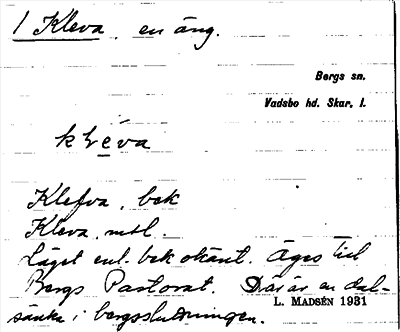 1 Kleva, en äng.
Bergs sn.
Vadsbo hd. Skar. l.
kléva
Klefva, bok
Kleva, mtl.
Läget enl. bok okänt. Äges till
Bergs Pastorat. Där är en dal-
L. MADSÉN 1931
sänka i bergssluttningen.